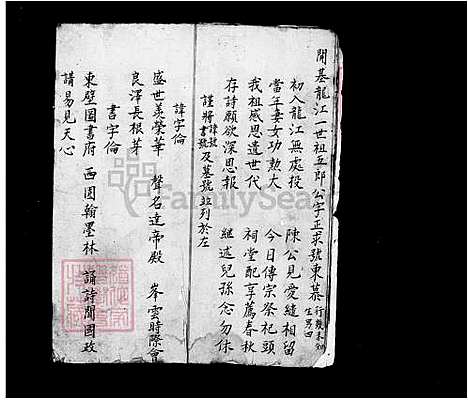 開基龍江一世祖五郎公字正求號東慕
行幾未錄
生男四
初入龍江無處投 陳公見愛繾相留
當年妻女功勲大 今日傳宗祭祀頭
我祖感恩遺世代 祠堂配享薦春秋
存詩願欲深思報 繼述兒孫念勿休
謹將諱號書號及墓號並列於左
諱字倫
盛世羡榮華 聲名達帝殿 峯雲時際會
良澤長根芽
書字倫
東壁圖書府 西園翰墨林 誦詩聞國政
請易見天心
FamilySearch